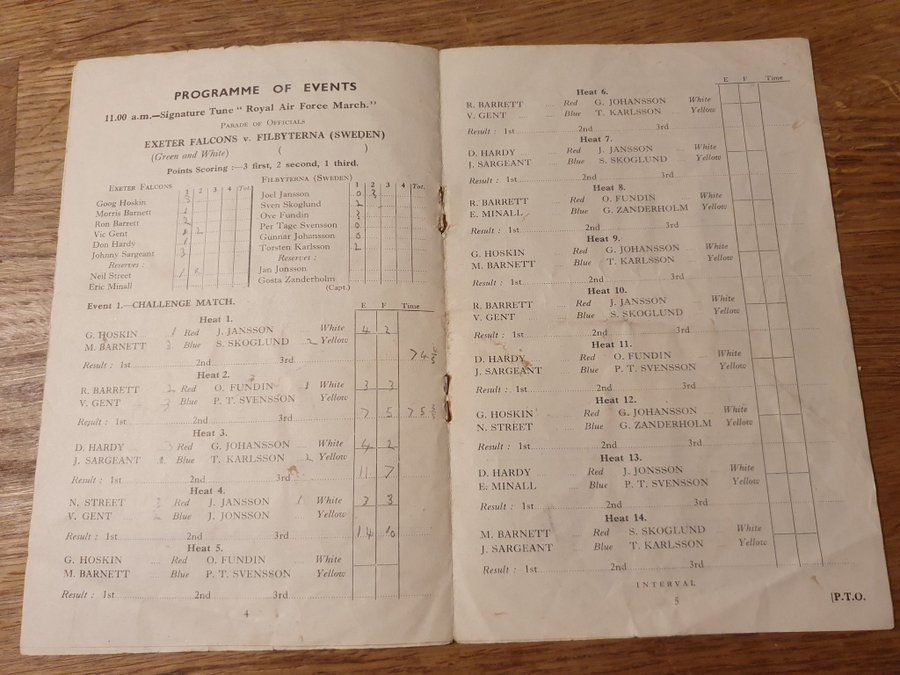 PROGRAMME OF EVENTS
11.00 a.m.—Signature Tune "Royal Air Force March."
PARADE OF OFFICIALS
EXETER FALCONS v. FILBYTERNA (SWEDEN)
(Green and White) ( )
Points Scoring :—3 first, 2 second, 1 third.
EXETER FALCONS 1 2 3 4 Tot.
Goog Hoskin 3
Morris Barnett 1
Ron Barrett 2
Vic Gent 2
Don Hardy
Johnny Sargeant 3
Reserves :
Neil Street
Eric Minall
FILBYTERNA (SWEDEN) 1 2 3 4 Tot.
Joel Jansson 0 3
Sven Skoglund 2
Ove Fundin 3
Per Tage Svensson 0
Gunnar Johansson 0
Torsten Karlsson 2
Reserves :
Jan Jonsson
Gosta Zanderholm
(Capt.)
Event 1.—CHALLENGE MATCH. E F Time
Heat 1.
G. HOSKIN 1 Red J. JANSSON White 4 2
M. BARNETT 3 Blue S. SKOGLUND 2 Yellow
Result : 1st 2nd 3rd 74
Heat 2.
R. BARRETT 2 Red O. FUNDIN 1 White 3 3
V. GENT Blue P. T. SVENSSON Yellow
Result : 1st 2nd 3rd 7 5 75
Heat 3.
D. HARDY 3 Red G. JOHANSSON White 4 2
J. SARGEANT Blue T. KARLSSON 2 Yellow
Result : 1st 2nd 3rd 11 7
Heat 4.
N. STREET Red J. JANSSON 1 White 3 3
V. GENT 2 Blue J. JONSSON Yellow
Result : 1st 2nd 3rd 14 10
Heat 5.
G. HOSKIN Red O. FUNDIN White
M. BARNETT Blue P. T. SVENSSON Yellow
Result : 1st 2nd 3rd
4
E F Time
Heat 6.
R. BARRETT Red G. JOHANSSON White
V. GENT Blue T. KARLSSON Yellow
Result : 1st 2nd 3rd
Heat 7.
D. HARDY Red J. JANSSON White
J. SARGEANT Blue S. SKOGLUND Yellow
Result : 1st 2nd 3rd
Heat 8.
R. BARRETT Red O. FUNDIN White
E. MINALL Blue G. ZANDERHOLM Yellow
Result : 1st 2nd 3rd
Heat 9.
G. HOSKIN Red G. JOHANSSON White
M. BARNETT Blue T. KARLSSON Yellow
Result : 1st 2nd 3rd
Heat 10.
R. BARRETT Red J. JANSSON White
V. GENT Blue S. SKOGLUND Yellow
Result : 1st 2nd 3rd
Heat 11.
D. HARDY Red O. FUNDIN White
J. SARGEANT Blue P. T. SVENSSON Yellow
Result : 1st 2nd 3rd
Heat 12.
G. HOSKIN Red G. JOHANSSON White
N. STREET Blue G. ZANDERHOLM Yellow
Result : 1st 2nd 3rd
Heat 13.
D. HARDY Red J. JONSSON White
E. MINALL Blue P. T. SVENSSON Yellow
Result : 1st 2nd 3rd
Heat 14.
M. BARNETT Red S. SKOGLUND White
J. SARGEANT Blue T. KARLSSON Yellow
Result : 1st 2nd 3rd
INTERVAL
5
P.T.O.